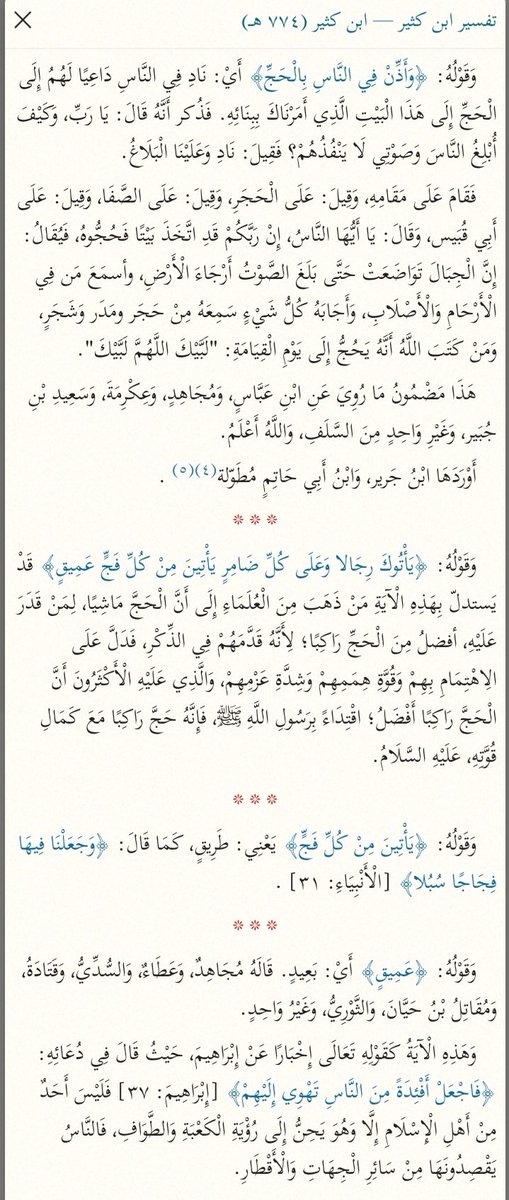 تفسير ابن كثير — ابن كثير (٧٧٤ هـ)
وَقَوْلُهُ: ﴿وَأَذِّنْ فِي النَّاسِ بِالْحَجِّ﴾ أَيْ: نَادِ فِي النَّاسِ دَاعِيًا لَهُمْ إِلَى
الْحَجِّ إِلَى هَذَا الْبَيْتِ الَّذِي أَمَرْنَاكَ بِبِنَائِهِ. فَذُكر أَنَّهُ قَالَ: يَا رَبِّ، وَكَيْفَ
أُبْلِغُ النَّاسَ وَصَوْتِي لَا يَنْفُذُهُمْ؟ فَقِيلَ: نَادِ وَعَلَيْنَا الْبَلَاغُ.
فَقَامَ عَلَى مَقَامِهِ، وَقِيلَ: عَلَى الْحَجَرِ، وَقِيلَ: عَلَى الصَّفَا، وَقِيلَ: عَلَى
أَبِي قُبَيس، وَقَالَ: يَا أَيُّهَا النَّاسُ، إِنْ رَبَّكُمْ قَدِ اتَّخَذَ بَيْتًا فَحُجُّوهُ، فَيُقَالُ:
إِنَّ الْجِبَالَ تَوَاضَعَتْ حَتَّى بَلَغَ الصَّوْتُ أَرْجَاءَ الْأَرْضِ، وأسمَعَ مَن فِي
الْأَرْحَامِ وَالْأَصْلَابِ، وَأَجَابَهُ كُلُّ شَيْءٍ سَمِعَهُ مِنْ حَجَر ومَدَر وَشَجَرٍ،
وَمَنْ كَتَبَ اللَّهُ أَنَّهُ يَحُجُّ إِلَى يَوْمِ الْقِيَامَةِ: "لَبَّيْكَ اللَّهُمَّ لَبَّيْكَ".
هَذَا مَضْمُونُ مَا رُوِيَ عَنِ ابْنِ عَبَّاسٍ، وَمُجَاهِدٍ، وَعِكْرِمَةَ، وَسَعِيدِ بْنِ
جُبَير، وَغَيْرِ وَاحِدٍ مِنَ السَّلَفِ، وَاللَّهُ أَعْلَمُ.
أَوْرَدَهَا ابْنُ جَرير، وَابْنُ أَبِي حَاتِمٍ مُطَوّلة(٤)(٥) .
وَقَوْلُهُ: ﴿يَأْتُوكَ رِجَالا وَعَلَى كُلِّ ضَامِرٍ يَأْتِينَ مِنْ كُلِّ فَجٍّ عَمِيقٍ﴾ قَدْ
يَستدلّ بِهَذِهِ الْآيَةِ مَنْ ذَهَبَ مِنَ الْعُلَمَاءِ إِلَى أَنَّ الْحَجَّ مَاشِيًا، لِمَنْ قَدَرَ
عَلَيْهِ، أَفضلُ مِنَ الْحَجِّ رَاكِبًا؛ لِأَنَّهُ قَدَّمَهُمْ فِي الذِّكْرِ، فَدَلَّ عَلَى
الِاهْتِمَامِ بِهِمْ وَقُوَّةِ هِمَمِهِمْ وَشِدَّةِ عَزْمِهِمْ، وَالَّذِي عَلَيْهِ الْأَكْثَرُونَ أَنَّ
الْحَجَّ رَاكِبًا أَفْضَلُ؛ اقْتِدَاءً بِرَسُولِ اللَّهِ ﷺ، فَإِنَّهُ حَجَّ رَاكِبًا مَعَ كَمَالِ
قُوَّتِهِ، عَلَيْهِ السَّلَامُ.
وَقَوْلُهُ: ﴿يَأْتِينَ مِنْ كُلِّ فَجٍّ﴾ يَعْنِي: طَرِيقٍ، كَمَا قَالَ: ﴿وَجَعَلْنَا فِيهَا
فِجَاجًا سُبُلا﴾ [الْأَنْبِيَاءِ: ٣١] .
وَقَوْلُهُ: ﴿عَمِيقٍ﴾ أَيْ: بَعِيدٍ. قَالَهُ مُجَاهِدٌ، وَعَطَاءٌ، وَالسُّدِّيُّ، وَقَتَادَةُ،
وَمُقَاتِلُ بْنُ حَيَّانَ، وَالثَّوْرِيُّ، وَغَيْرُ وَاحِدٍ.
وَهَذِهِ الْآيَةُ كَقَوْلِهِ تَعَالَى إِخْبَارًا عَنْ إِبْرَاهِيمَ، حَيْثُ قَالَ فِي دُعَائِهِ:
﴿فَاجْعَلْ أَفْئِدَةً مِنَ النَّاسِ تَهْوِي إِلَيْهِمْ﴾ [إِبْرَاهِيمَ: ٣٧] فَلَيْسَ أَحَدٌ
مِنْ أَهْلِ الْإِسْلَامِ إِلَّا وَهُوَ يَحِنُّ إِلَى رُؤْيَةِ الْكَعْبَةِ وَالطَّوَافِ، فَالنَّاسُ
يَقْصِدُونَهَا مِنْ سَائِرِ الْجِهَاتِ وَالْأَقْطَارِ.